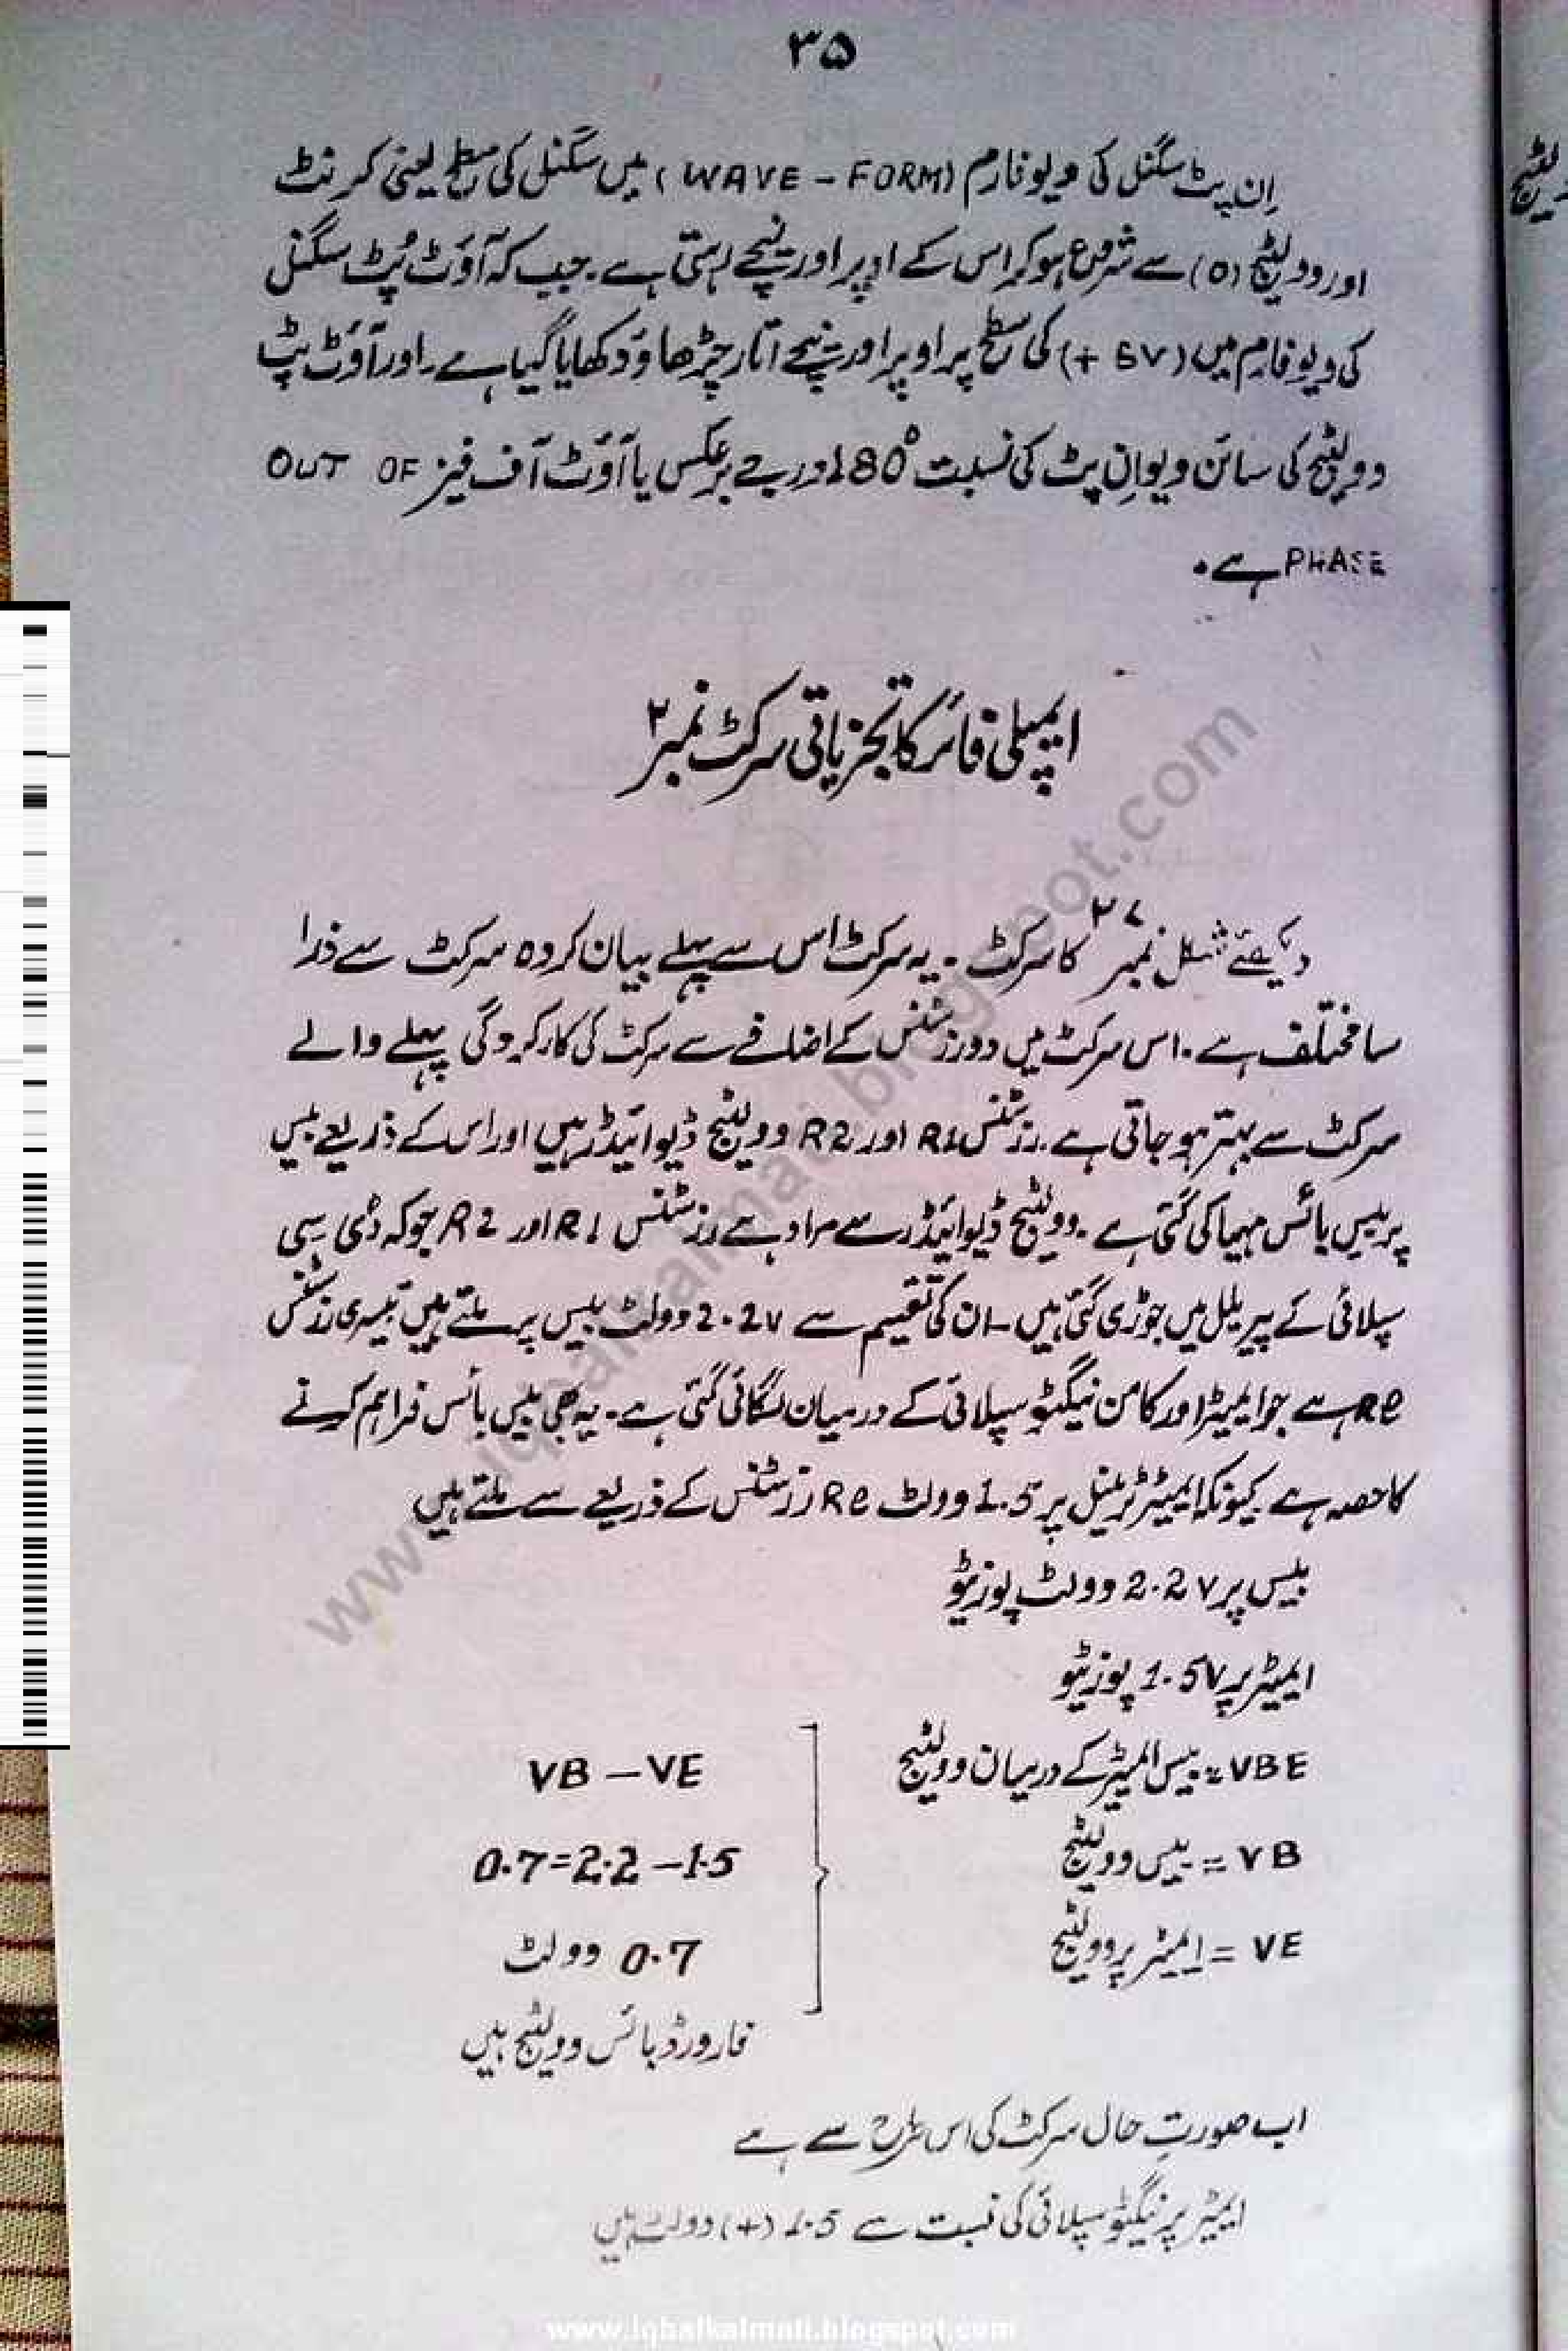 ۳۵
اِن پٹ سگنل کی ویو فارم (WAVE - FORM) میں سگنل کی سطح یعنی کرنٹ
اور وولٹیج (0) سے شروع ہو کر اس کے اوپر اور نیچے رہتی ہے۔ جب کہ آؤٹ پُٹ سگنل
کی ویو فارم میں (+ 5V) کی سطح پر اوپر اور نیچے اتار چڑھاؤ دکھایا گیا ہے۔ اور آؤٹ پٹ
وولٹیج کی سائن ویو اِن پٹ کی نسبت 180° درجے برعکس یا آؤٹ آف فیز OUT OF
PHASE ہے۔
ایمپلی فائر کا تجزیاتی سرکٹ نمبر ۲
دیکھئے شکل نمبر ۲۷ کا سرکٹ ۔ یہ سرکٹ اس سے پہلے بیان کردہ سرکٹ سے ذرا
سا مختلف ہے ۔ اس سرکٹ میں دو رزسٹنس کے اضافے سے سرکٹ کی کارکردگی پہلے والے
سرکٹ سے بہتر ہو جاتی ہے ۔ رزسٹنس R1 اور R2 وولٹیج ڈیوائیڈر ہیں اور اس کے ذریعے بیس
پر بیس بائس مہیا کی گئی ہے ۔ وولٹیج ڈیوائیڈر سے مراد ہے رزسٹنس R1 اور R2 جو کہ ڈی سی
سپلائی کے پیریلل میں جوڑی گئی ہیں ۔ ان کی تقسیم سے 2.2V وولٹ بیس پر ملتے ہیں تیسری رزسٹنس
Re ہے جو ایمیٹر اور کامن نیگیٹو سپلائی کے درمیان لگائی گئی ہے ۔ یہ بھی بیس بائس فراہم کرنے
کا حصہ ہے کیونکہ ایمیٹر ٹرمینل پر 1.5 وولٹ Re رزسٹنس کے ذریعے سے ملتے ہیں
بیس پر 2.2V وولٹ پوزیٹو
ایمیٹر پر 1.5V پوزیٹو
VBE = بیس ایمیٹر کے درمیان وولٹیج
VB = بیس وولٹیج
VE = ایمیٹر پر وولٹیج
VB – VE
0.7=2.2 –1.5
0.7 وولٹ
فارورڈ بائس وولٹیج ہیں
اب صورتِ حال سرکٹ کی اس طرح سے ہے
ایمیٹر پر نیگیٹو سپلائی کی نسبت سے 1.5 (+) وولٹ ہیں
www.iqbalkalmati.blogspot.com
www.iqbalkalmati.blogspot.com